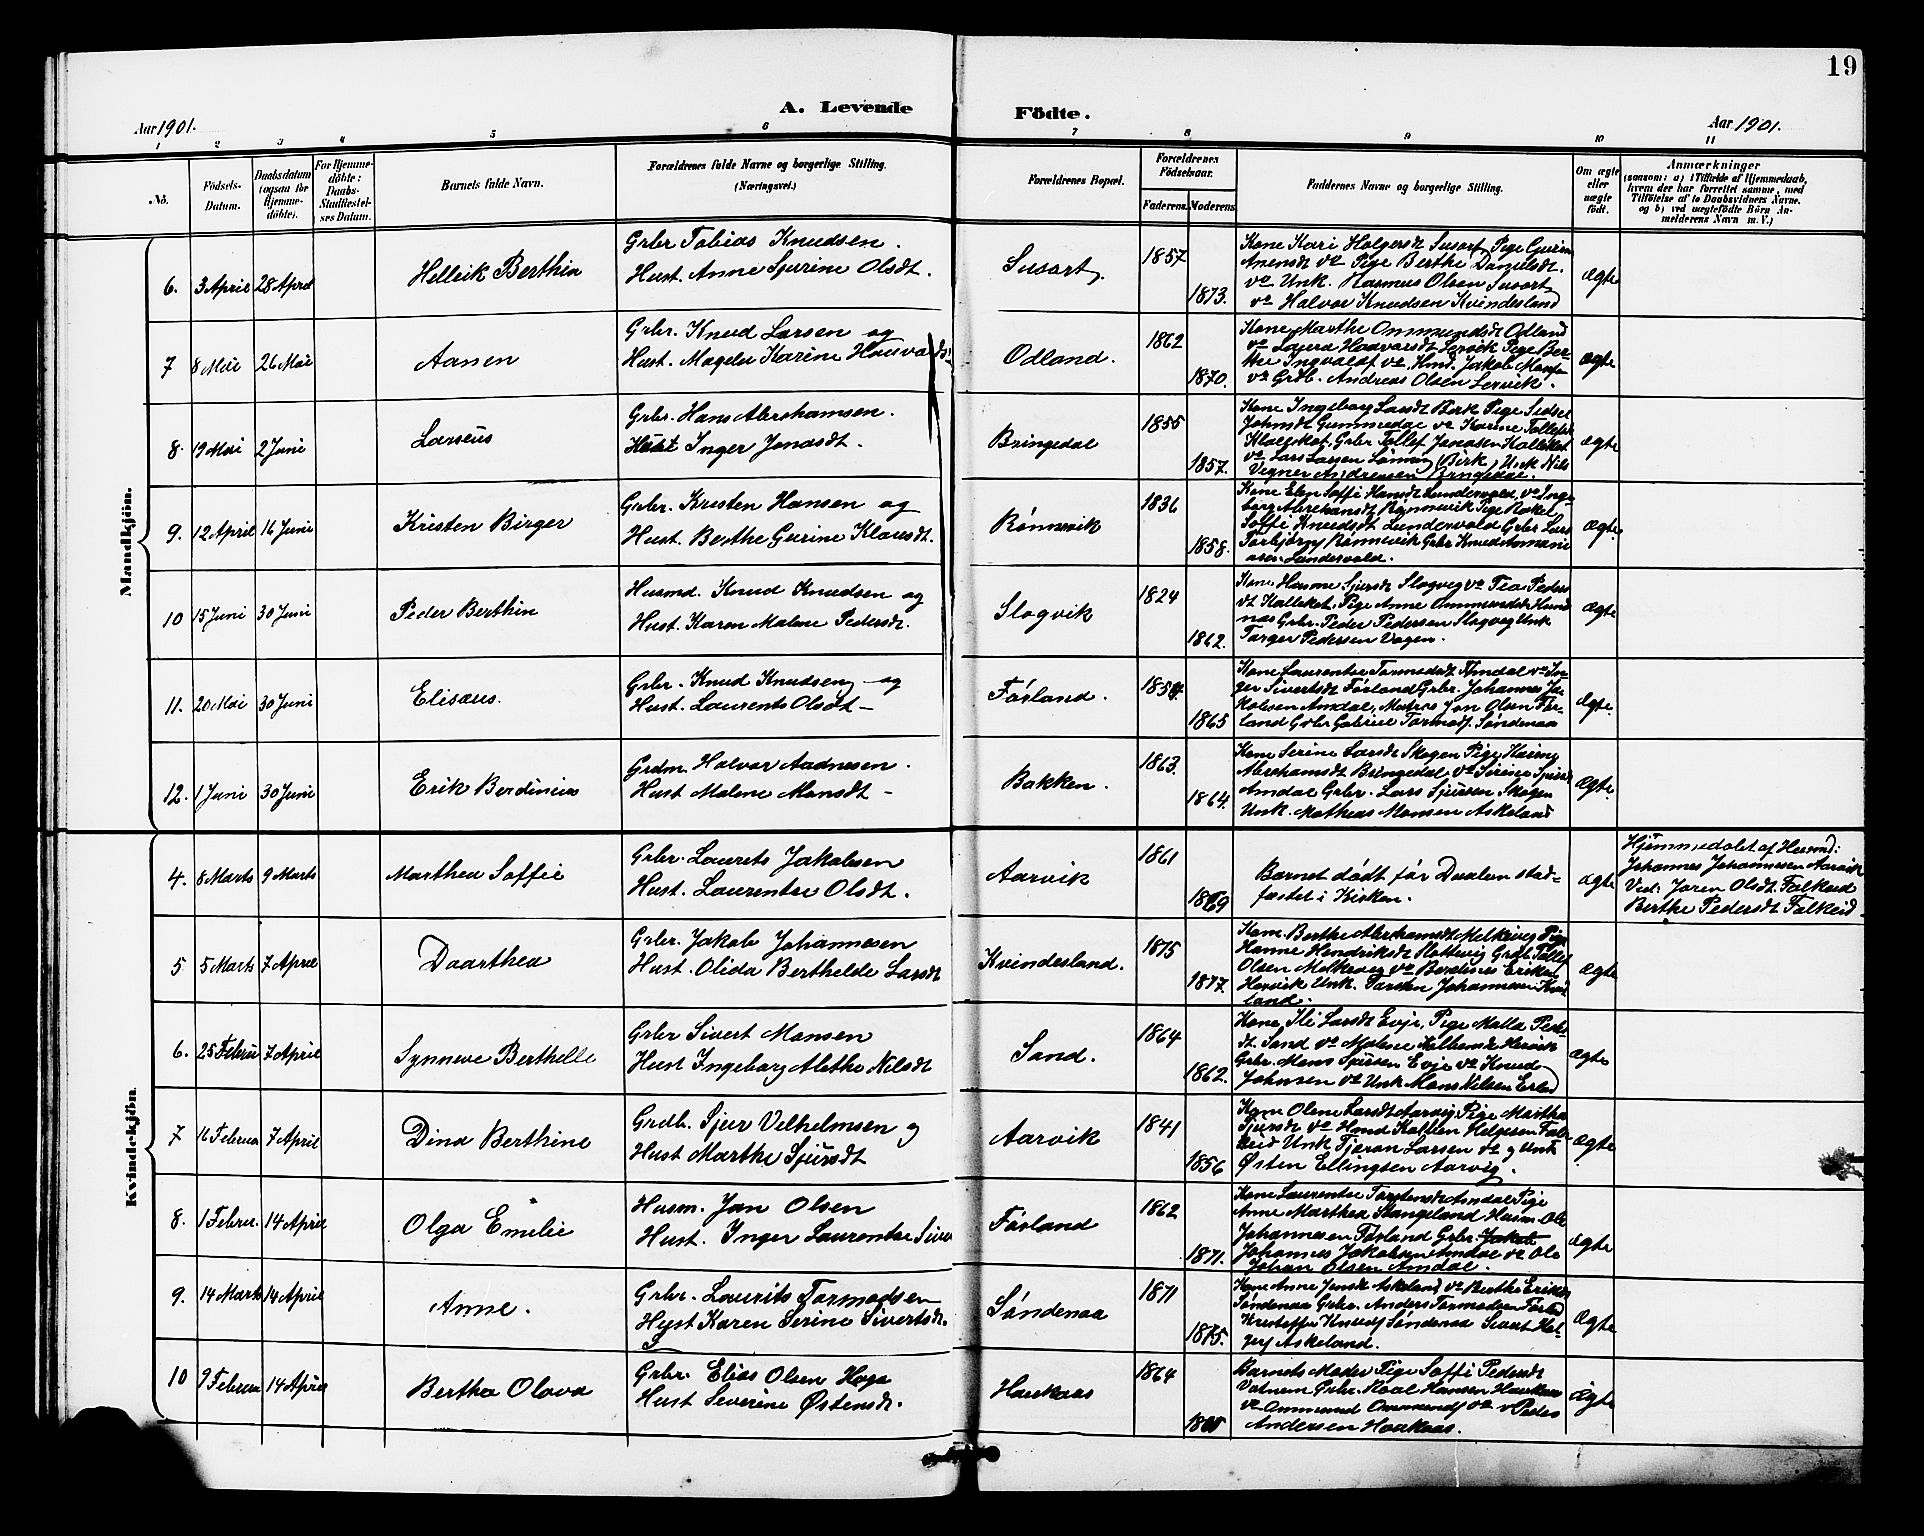 19
A. Levende Födte.
Aar 1901. Aar 1901.
1 2 3 4 5 6 7 8 9 10 11
No.
Födsels-Datum.
Daabsdatum (ogsaa for Hjemme-döbte).
For Hjemme-döbte: Daabs-Stadfæstel-ses Datum.
Barnets fulde Navn.
Forældrenes fulde Navne og borgerlige Stilling. (Næringsvei.)
Forældrenes Bopæl.
Forældrenes Födselsaar.
Faderens. Moderens.
Faddernes Navne og borgerlige Stilling.
Om ægte eller uægte födt.
Anmærkninger
(saasom: a) i Tilfælde af Hjemmedaab, hvem der har forrettet samme, med Tilföielse af to Daabsvidners Navne, og b) ved uægtefödte Börn An-melderens Navn m. V.)
Mandkjön.
6. 3 April 28 April Hellvik Berthin
Grbr Tobias Knudsen.
Hust. Anne Sjurine Olsdt.
Susort 1857 1873.
Kone Kari Holgersdt Susort Pige
Pige Berthe Danielsdt.
vo Unk. Rasmus Olsen Susort
vo Halvor Knudsen Kvindesland
ægte
7 8 Mai 26 Mai Aanen
Grbr. Knud Larsen og
Hust. Magda Karine Haavards
Odland. 1862 1870.
Kone Marthe Ommundsdt Odland
Haavarsdt Lervik Pige Ber-
the
vo Grdb. Andreas Olsen Lervik.
ægte
8. 19 Mai 2 Juni Larseus
Grbr. Hans Abrahamsen.
Hust Inger Jonasdt.
Bringedal 1855 1857.
Kone Ingeborg Larsdt Birk Pige Sidsel
Grbr Tollef Jonasen Kallekot
Unk Nils
Vegner Andreasen Bringedal.
ægte
9. 12 April 16 Juni Kristen Birger
Grbr. Kristen Hansen og
Hust. Berthe Gurine Klausdt.
Rönnevik 1836 1858.
Kone Elen Soffi Hansdt Lundervold, vo Inge-
borg Abrahamsdt Rönnevik Pige Rakel
Soffi Knudsdt Lundervold Grbr Lars
Torbjörns Rönnevik Grbr Knud
ægte
10 15 Juni 30 Juni Peder Berthin
Husmd. Knud Knudsen og
Hust. Karen Malene Pedersdt.
Slogvik 1824 1862.
Kone Hanne Sjursdt Slogvig vo Tea Peders
dt Kallekot, Pige Anne Ommundsdt Hund
nas Grbr. Peder Pedersen Slogvig Unk
Torger Pedersen Vagen.
ægte
11. 20 Mai 30 Juni Elisæus.
Grbr. Knud Knudsen og
Hust. Laurents Olsdt
Förland. 1865
Kone Laurentse Tormodsdt Amdal vo In-
ger Sivertsdt Förland Grbr. Johannes Ja-
kobsen Amdal, Matros Jon Olsen För-
land Grbr Gabriel Tormodf. Söndenaa
ægte.
12. 1 Juni 30 Juni Erik Berdinius
Grdm. Halvor Aadnesen.
Hust Malene Monsdt
Bakken. 1863. 1864.
Kone Serine Larsdt Skogen Pige
Abrahamsdt Bringedal vo Serine Sjursdt
Amdal Grbr. Lars Sjursen Skogen
Unk. Mathias Monsen Askeland
ægte.
Kvindekjön
4. 8 Marts 9 Marts Marthea Soffie
Grbr. Laurets Jakobsen
Hust. Laurentse Olsdt.
Aarvik 1861 1869
Barnet dödt för Daaben stad-
fæstet i Kirken.
ægte
Hjemmedøbt af Husmd:
Johannes Johannesen Aarvik
Ved: Joren Olsdt Falkeid
Berthe Pedersdt Falkeid
5 5 Marts 7 April Daarthea
Grbr. Jakob Johannesen
Hust. Olida Berthelde Larsdt
Kvindesland. 1875 1877.
Kone Berthe Abrahamsdt Melkevig Pige
Hanne Hendriksdt Grdb. Tollef
Olsen Melkevig vo Berdines Eriksen
Hervik Unk. Torsten Johannesen Kvin
land.
ægte
6. 25 Februar 7 April Synneve Berthelle
Grbr Sivert Monsen
Hust Ingeborg Alethe Nilsdt
Sand. 1864 1862.
Kone Ili Larsdt Evje, Pige Malla Peders
dt. Sand vo Malene
Grbr. Mons Sjursen Evje vo Knud
Johnsen vo Unk Mons Nilsen Erland
ægte
7 16 Februar 7 April Dina Berthine
Grdb. Sjur Velhelmsen og
Hust Marthe Sjursdt
Aarvik 1841 1856
Kone Olene Larsdt Aarvig Pige Marthe
Sjursdt vo Hmd Helgesen Fal-
keid Unk Tjeran Larsen vo og Unk
Østen Ellingsen Aarvig.
ægte
8. 1 Februar. 14 April Olga Emilie
Husm. Jon Olsen
Hust. Inger Laurentse Siver
Förland 1862 1871.
Kone Laurentse Torstensdt Amdal Pige
Anne Marthea Stangeland Husm Ole
Johannesen Förland Grbr. Jakob
Johannes Jakobsen Amdal vo Ole
Johan Olsen Amdal.
ægte
9. 14 Marts 14 April Anne.
Grbr. Laurits Tormodsen
Hust Karen Serine Sivertsdt.
Söndenaa 1871 1875.
Kone Anne Jensdt Askeland vo Berthe Eriksdt
Söndenaa Grbr. Anders Tormodsen Förland
Kristoffer Knudsf Söndenaa Hol-
gersf Askeland.
ægte
10 9 Februar 14 April Bertha Olava
Grbr. Elias Olsen Haga
Hust Severine Østensdt.
Haukaas 1864
Barnets Moder Pige Soffi Pedersdt
Vatnem Grbr. Roal Hansen Haukaas
vo Ommund Ommundsf vo v Peder
Andersen Haukaas.
ægte